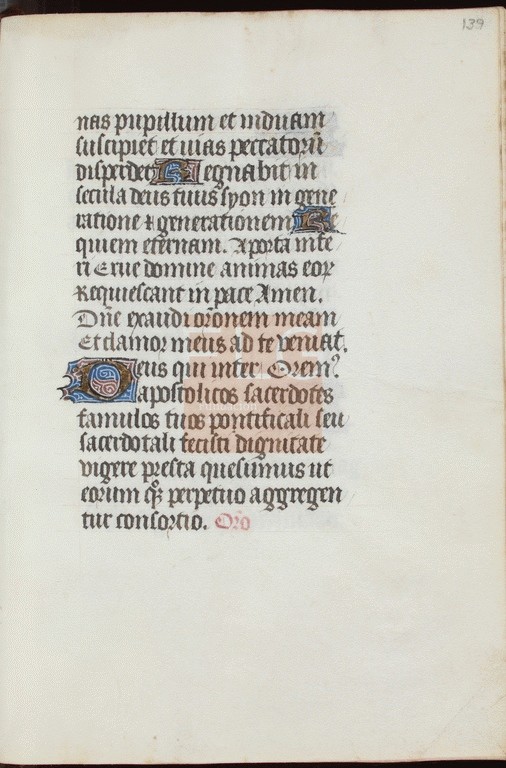 139
nas pupillum et viduam
suscipiet et vias peccatorū
disperdet Regnabit in
secula deus tuus syon in gene
ratione ⁊ generationem Re
quiem eternam. A porta infe
ri Erue domine animas eoꝝ
Requiescant in pace Amen.
Dn̄e exaudi or̄onem meam
Et clamor meus ad te veniat.
Deus qui inter Orem⁹
apostolicos sacerdotes
famulos tuos pontificali seu
sacerdotali fecisti dignitate
vigere presta quesumus ut
eorum qꝫ perpetuo aggregen
tur consortio. Oro̅